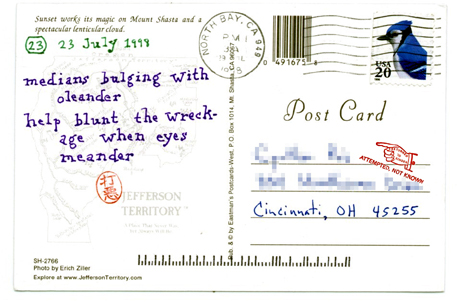 Sunset works its magic on Mount Shasta and a
spectacular lenticular cloud.
23 23 July 1998
medians bulging with
oleander
help blunt the wreck-
age when eyes
meander
JEFFERSON
TERRITORY
SH-2766
Photo by Erich Ziller
Explore at www.JeffersonTerritory.com
Pub. & © by Eastman's Postcards-West, P.O. Box 1014, Mt. Shasta, CA 96067
NORTH BAY, CA 949
PM
1998
0 491675
USA
20
Post Card
ATTEMPTED, NOT KNOWN
Cincinnati, OH 45255